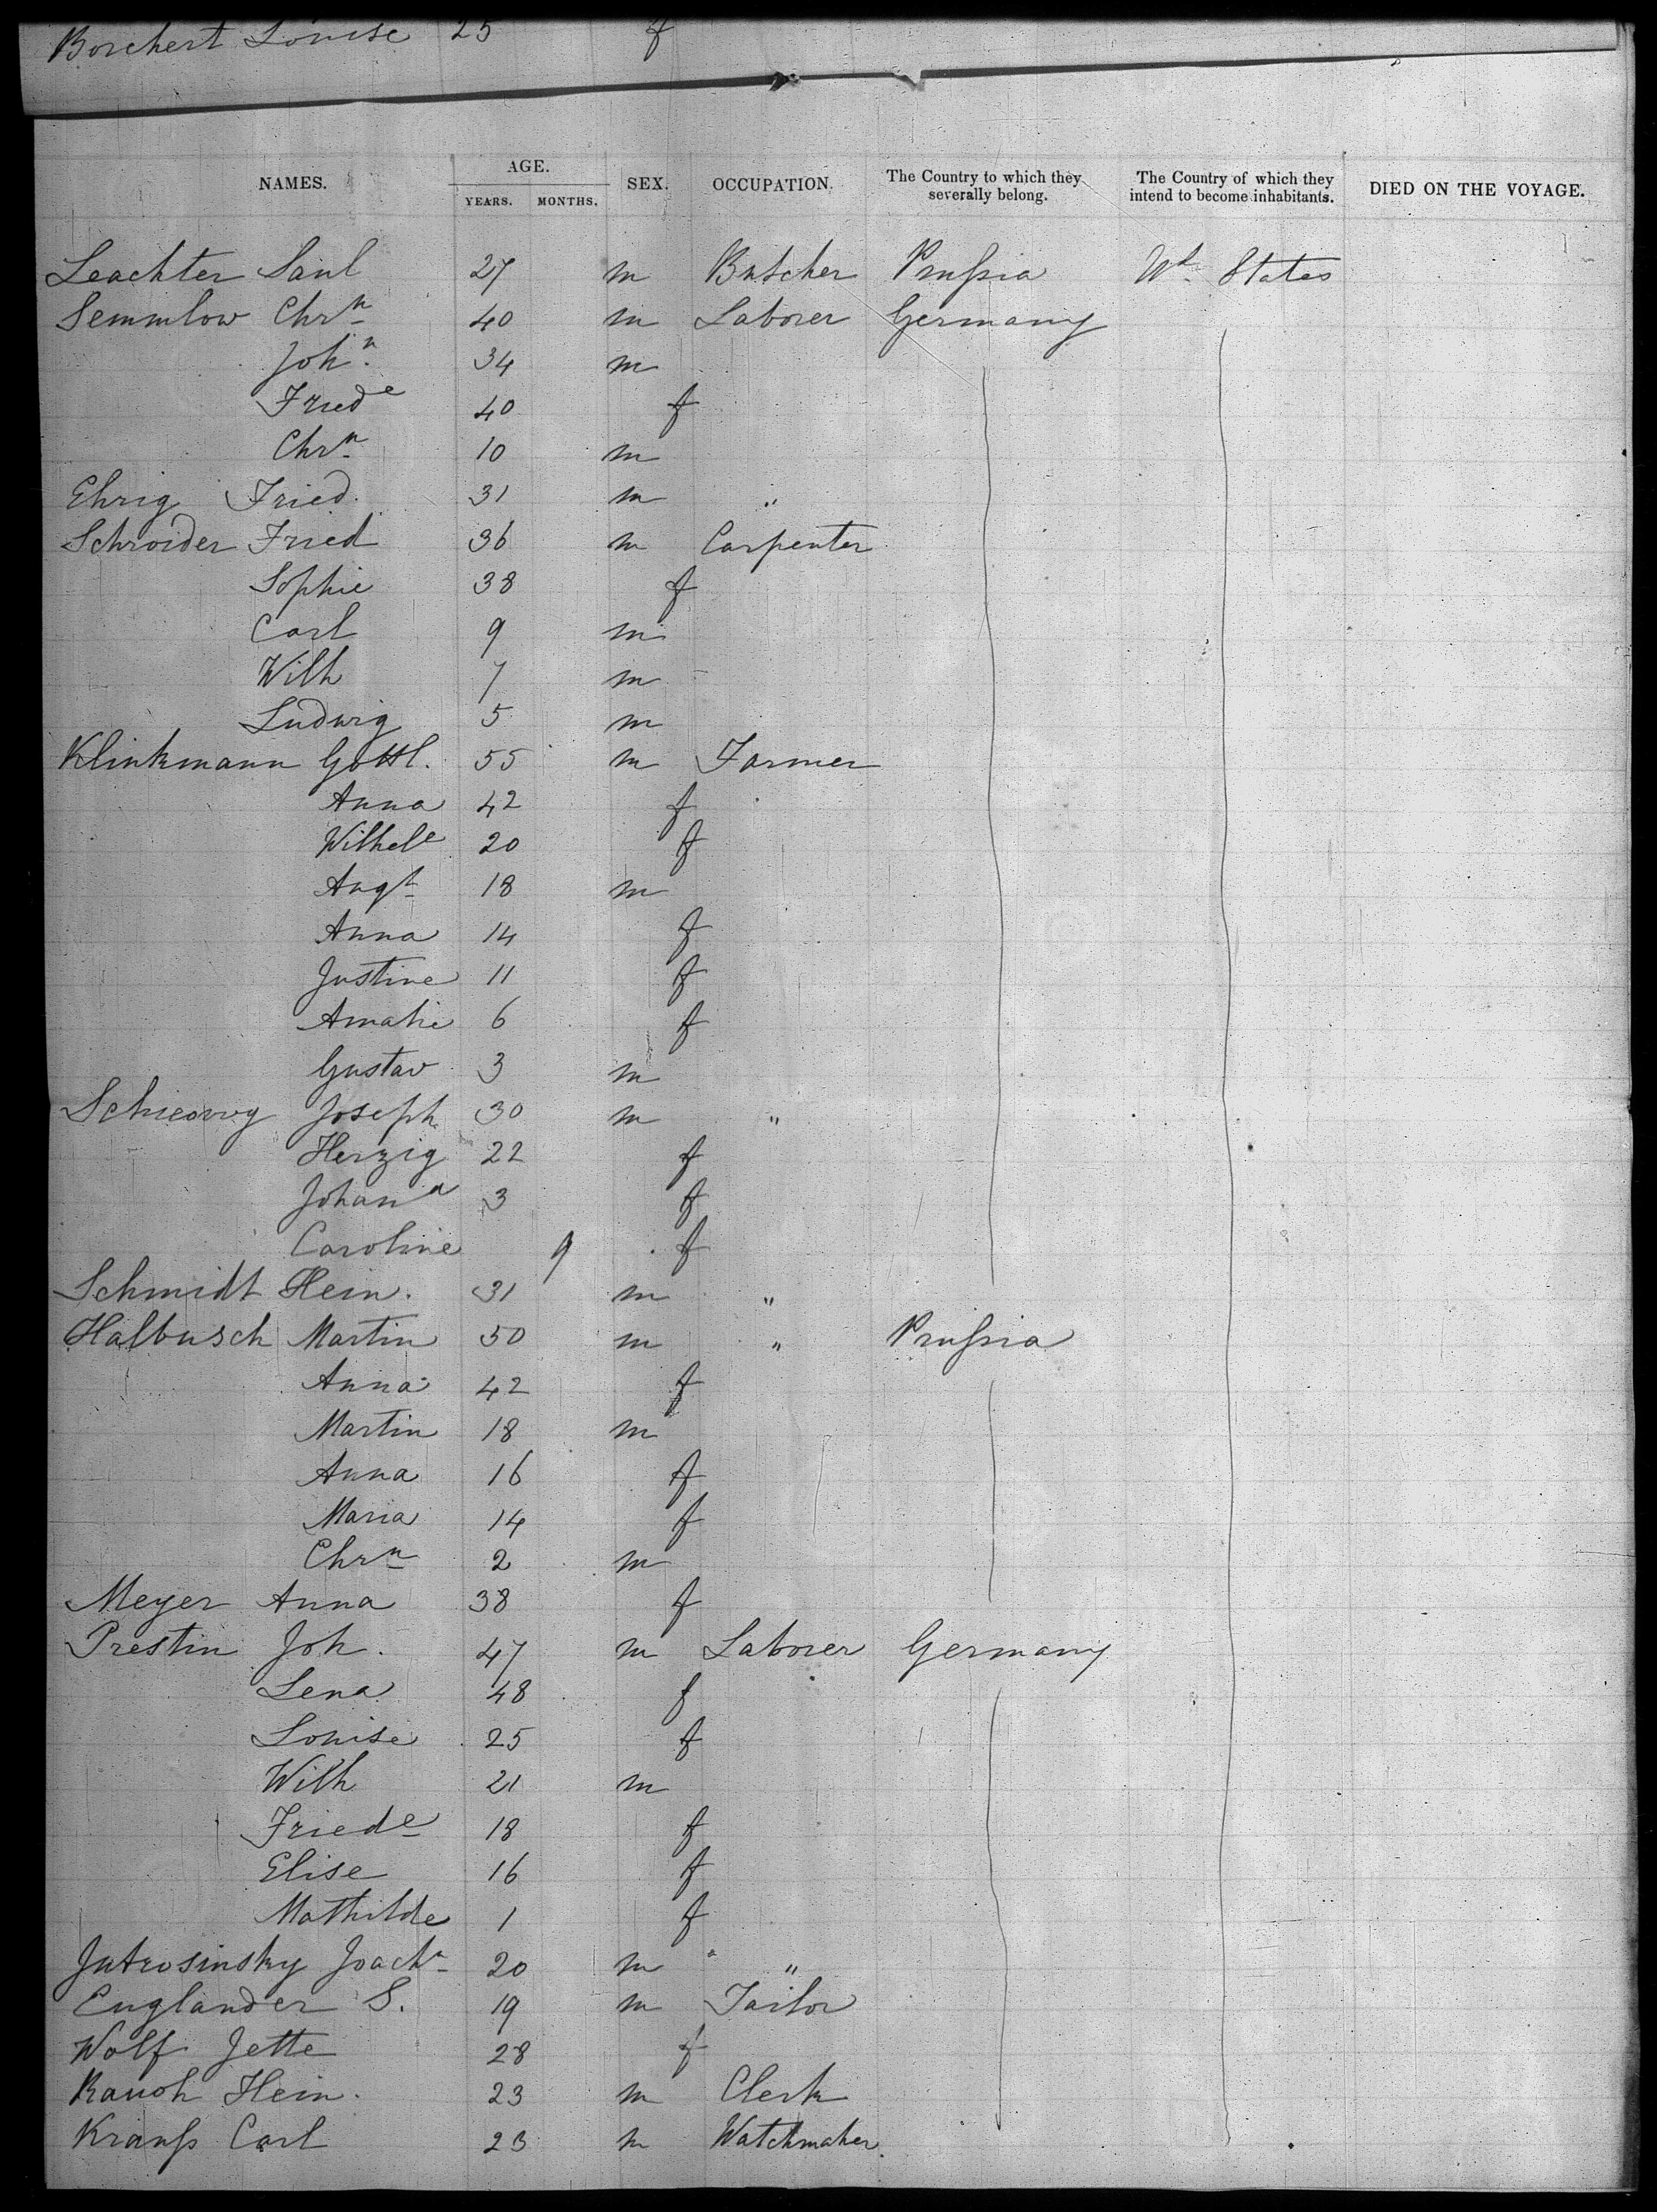 Borchert Louise 25 f
NAMES. AGE. YEARS. MONTHS. SEX. OCCUPATION. The Country to which they severally belong. The Country of which they intend to become inhabitants. DIED ON THE VOYAGE.
Leachter Saul 27 m Butcher Prußia Ud. States
Semmlow Chrn 40 m Laborer Germany
John. 34 m
Friede 40 f
Chrn 10 m
Ehrig Fried. 31 m "
Schroider Fried 36 m Carpenter
Sophie 38 f
Carl 9 m
Wilh 7 m
Ludwig 5 m
Klinkmann Gottl. 55 m Farmer
Anna 42 f
Wilhele 20 f
Augt 18 m
Anna 14 f
Justine 11 f
Amalie 6 f
Gustav 3 m
Joseph 30 m "
Herzig 22 f
Johana 3 f
Caroline 9 f
Schmidt Hein. 31 m "
Halbusch Martin 50 m " Prußia
Anna 42 f
Martin 18 m
Anna 16 f
Maria 14 f
Chrn 2 m
Meyer Anna 38 f
Prestin Joh. 47 m Laborer Germany
Lena 48 f
Louise 25 f
Wilh 21 m
Friede 18 f
Elise 16 f
Mathilde 1 f
Jutrosinsky Joachm 20 m "
Englander S. 19 m Tailor
Wolf Jette 28 f
Rauch Hein. 23 m Clerk
Krauß Carl 23 m Watchmaker.